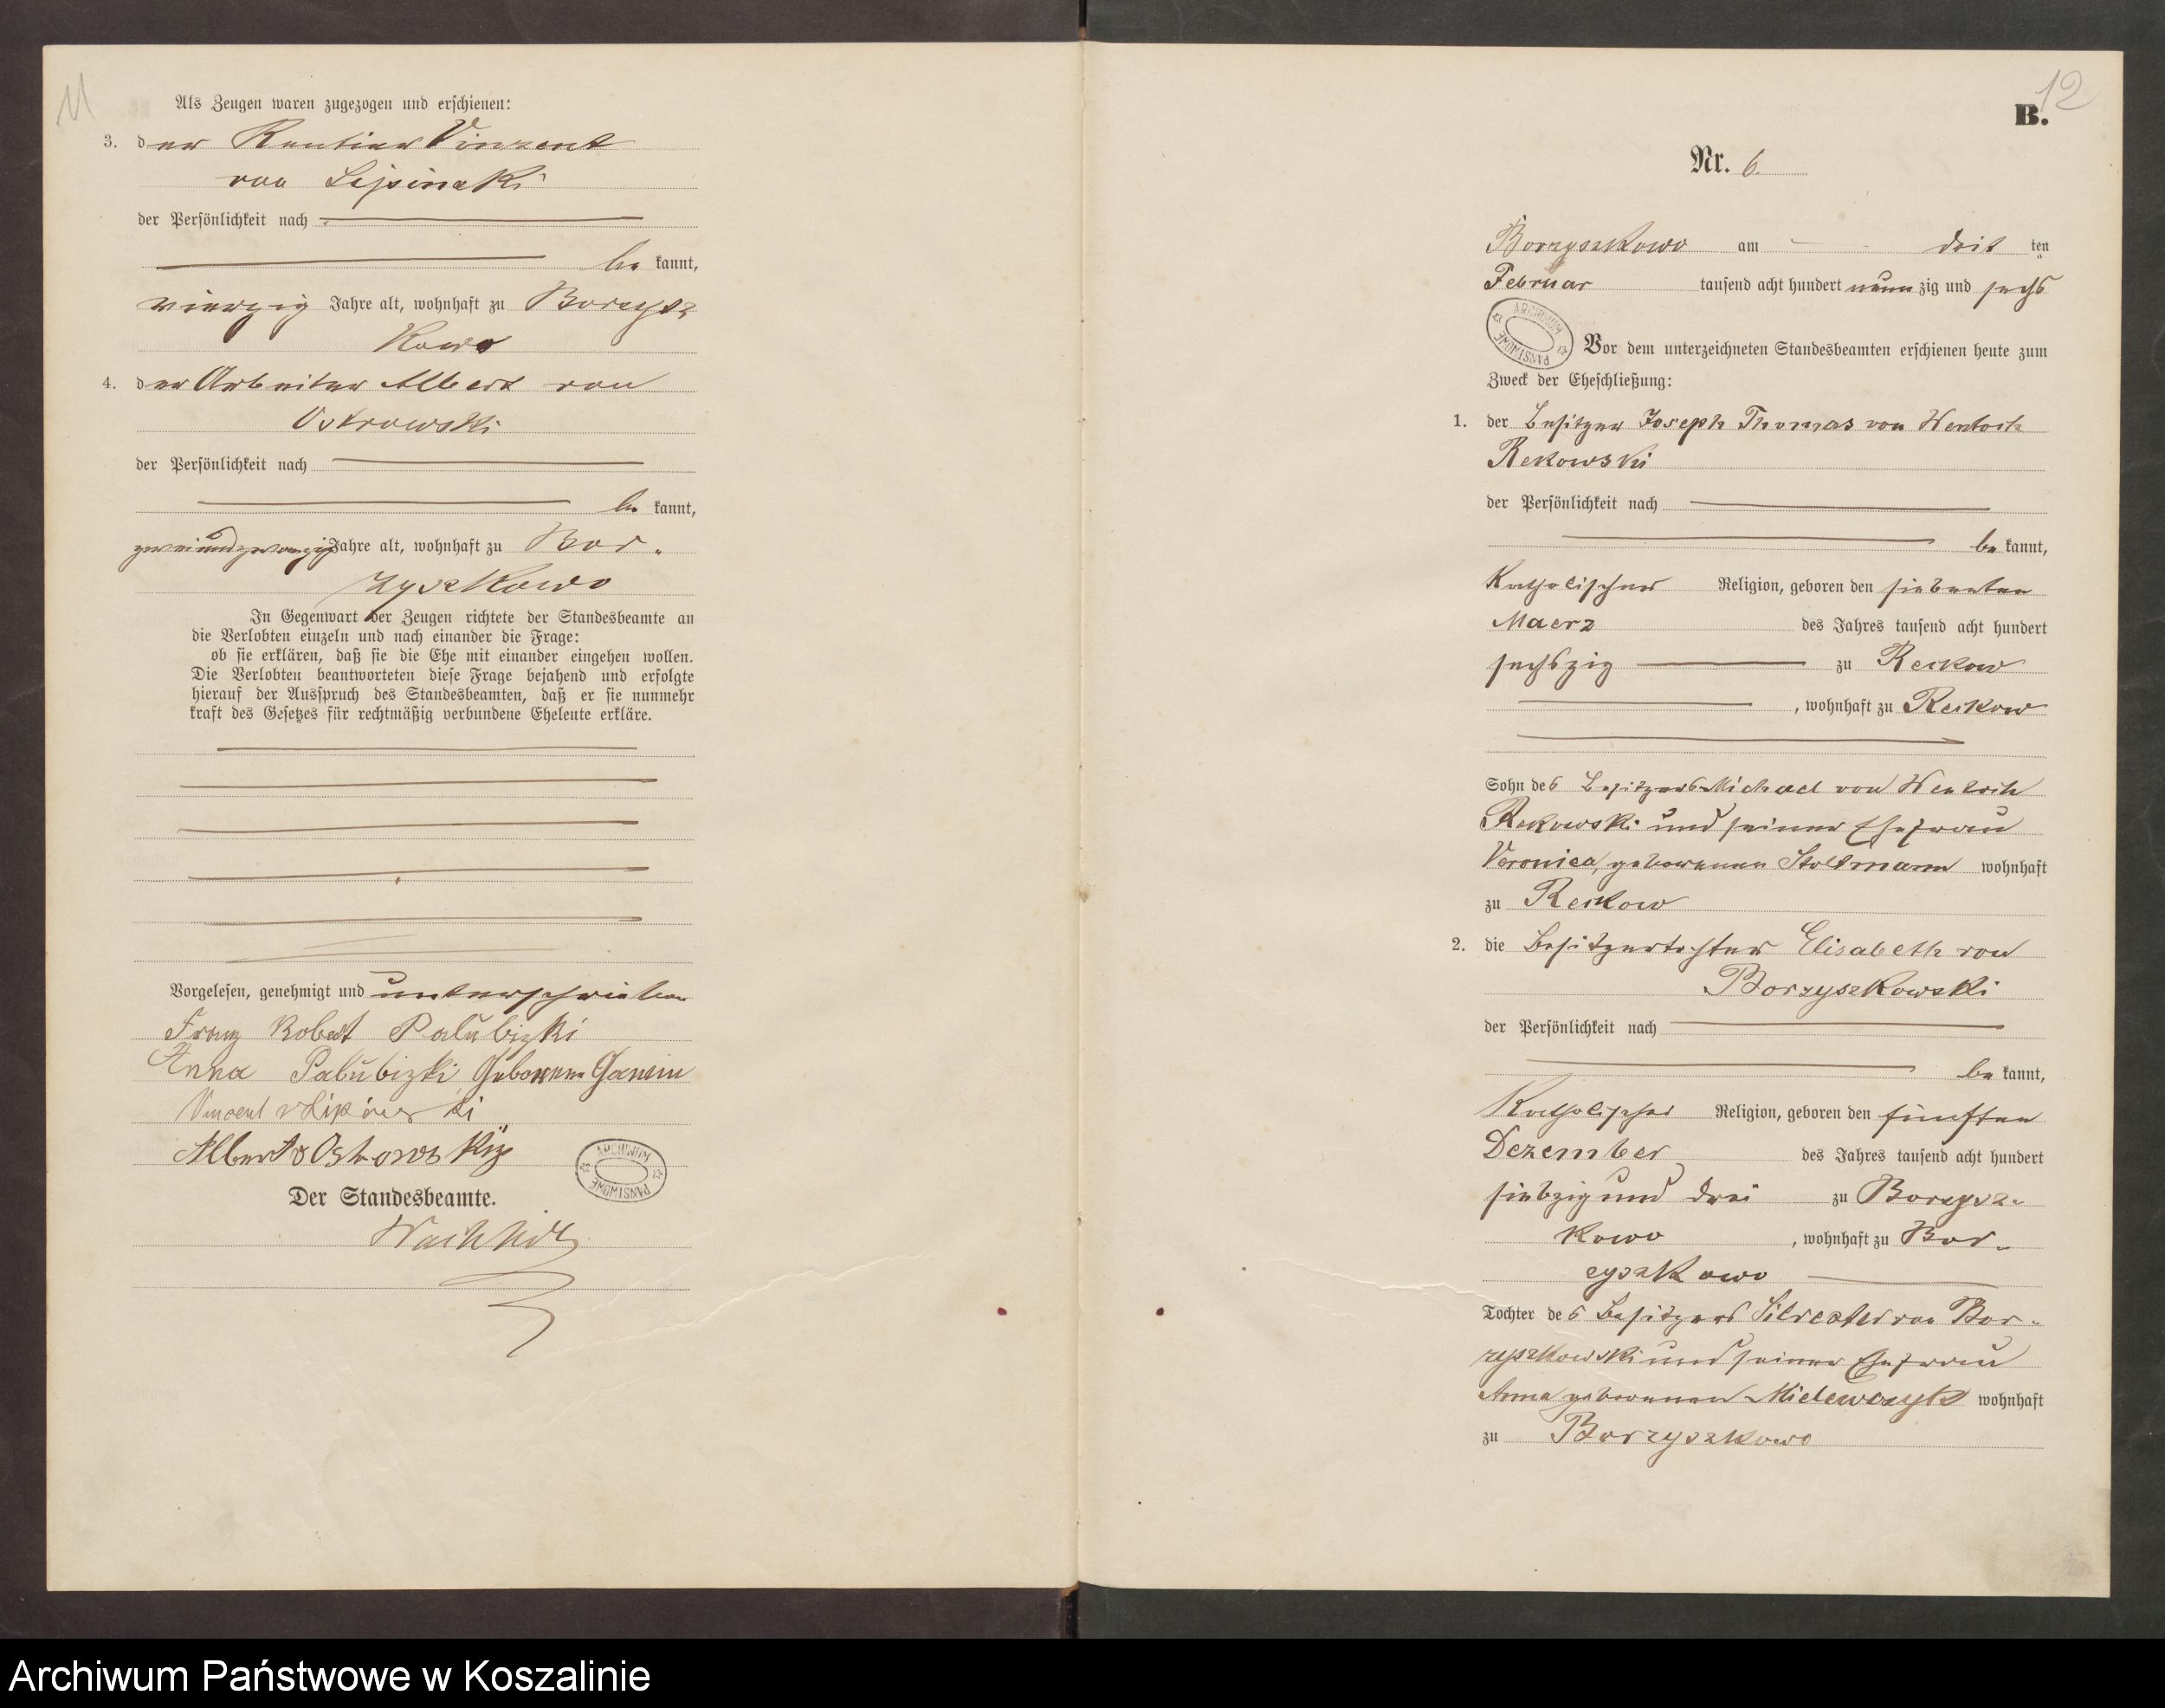 11
Als Zeugen waren zugezogen und erschienen:
3. der Rentier Vinzent
von Lipinski
der Persönlichkeit nach
be kannt,
vierzig Jahre alt, wohnhaft zu Borzysz
kowo
4. der Arbeiter Albert von
Ostrowski
der Persönlichkeit nach
be kannt,
zweiundzwanzig Jahre alt, wohnhaft zu Bor-
zyszkowo
In Gegenwart der Zeugen richtete der Standesbeamte an
die Verlobten einzeln und nach einander die Frage:
ob sie erklären, daß sie die Ehe mit einander eingehen wollen.
Die Verlobten beantworteten diese Frage bejahend und erfolgte
hierauf der Ausspruch des Standesbeamten, daß er sie nunmehr
kraft des Gesetzes für rechtmäßig verbundene Eheleute erkläre.
Vorgelesen, genehmigt und unterschrieben
Franz Robert Palubizki
Anna Palubizki Geborene
Vincent v Lipinski
Albert v
ARCHIWUM PAŃSTWOWE
Der Standesbeamte.
12
B.
Nr. 6.
Borzyszkowo am dritten
Februar tausend acht hundert neunzig und sechs
ARCHIWUM PAŃSTWOWE
Vor dem unterzeichneten Standesbeamten erschienen heute zum
Zweck der Eheschließung:
1. der Besitzer Joseph Thomas von Wentoch
Rekowski
der Persönlichkeit nach
be kannt,
Katholischer Religion, geboren den siebenten
Maerz des Jahres tausend acht hundert
sechszig zu Reckow
, wohnhaft zu Reckow
Sohn des Besitzers Michael von Wentoch
Rekowski und seiner Ehefrau
Veronica, geborenen Stoltmann wohnhaft
zu Reckow
2. die Besitzertochter Elisabeth von
Borzyszkowski
der Persönlichkeit nach
be kannt,
Katholischer Religion, geboren den fünften
Dezember des Jahres tausend acht hundert
siebzig und drei zu Borzysz-
kowo , wohnhaft zu Bor-
zyszkowo
Tochter des Besitzers Silvester von Bor-
zyszkowski und seiner Ehefrau
Anna geborenen Mielewczyk wohnhaft
zu Borzyszkowo
Archiwum Państwowe w Koszalinie